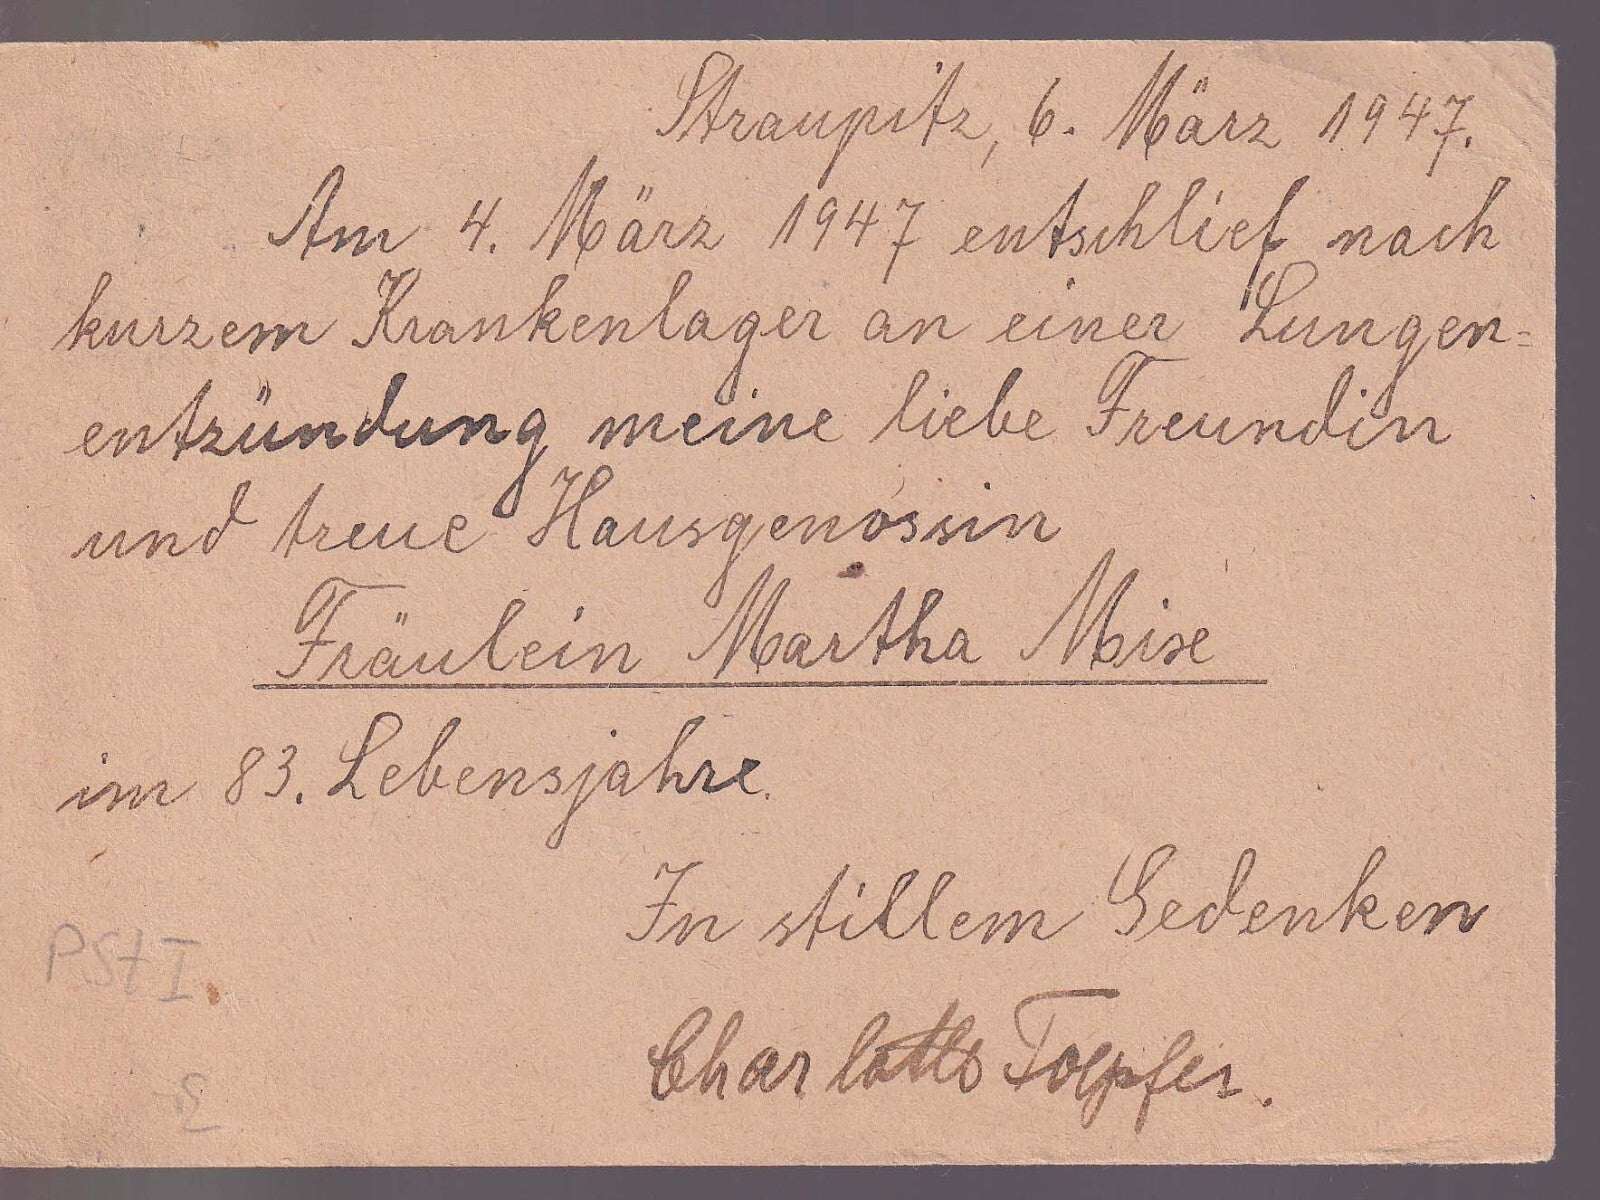 Straupitz, 6. März 1947.
Am 4. März 1947 entschlief nach
kurzem Krankenlager an einer Lungen=
entzündung meine liebe Freundin
und treue Hausgenossin
Fräulein Martha Mise
im 83. Lebensjahre.
In stillem Gedenken
Charlotte Toepfer.
PSt I